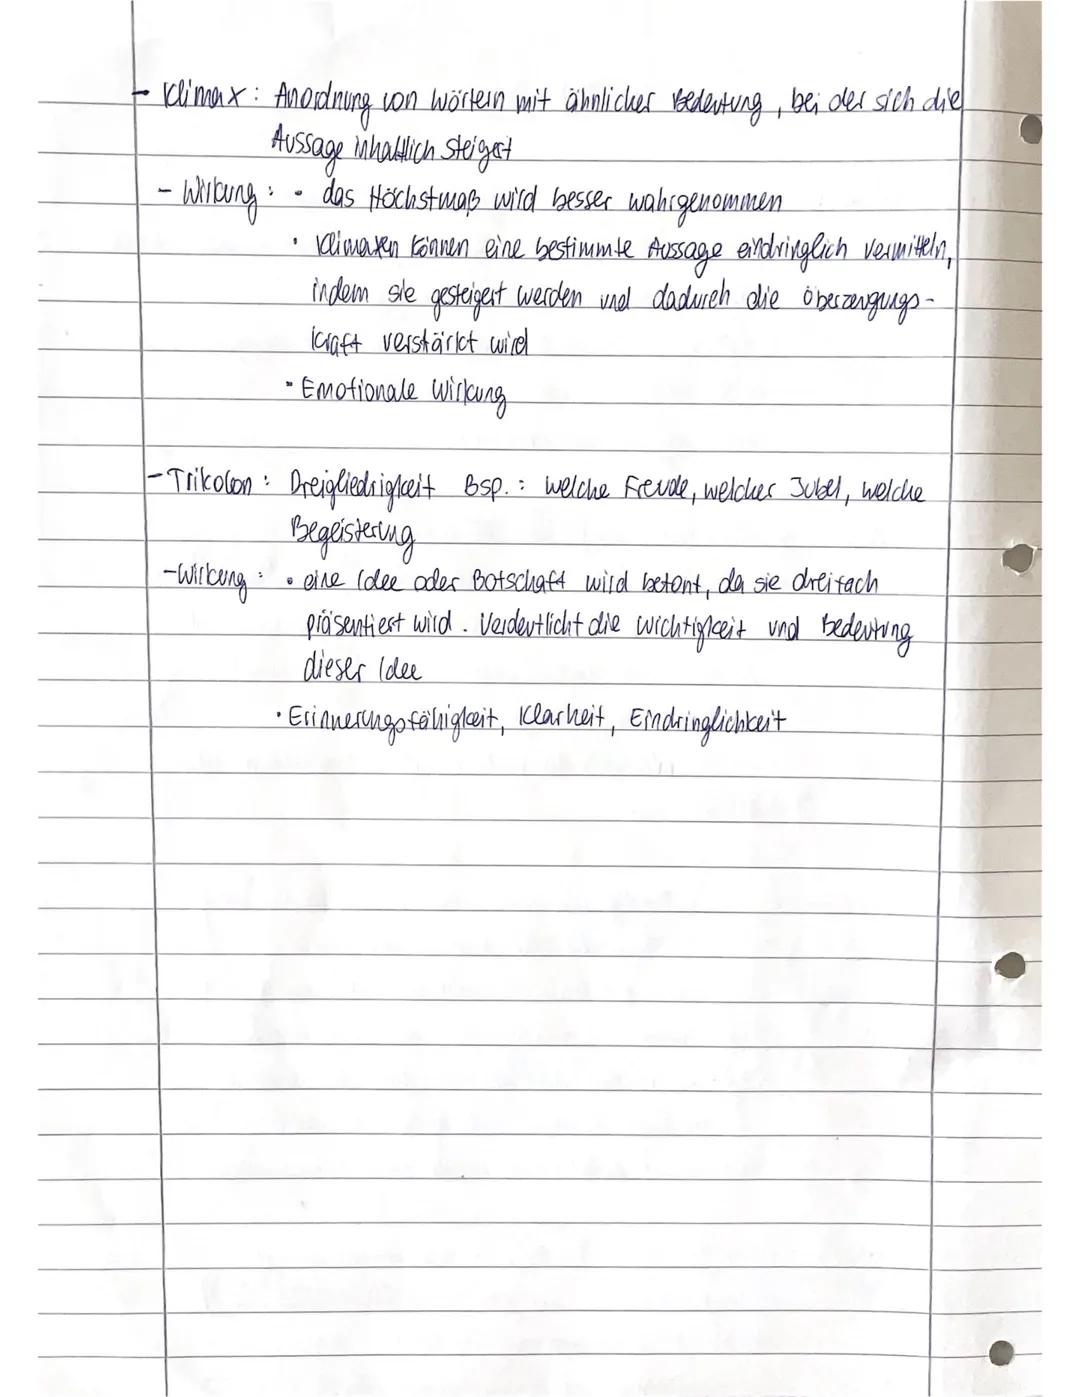 - Klimax: Anordnung von Wörtern mit ähnlicher Bedeutung, bei der sich die
Aussage inhaltlich steigert
- Wirkung: • das Höchstmaß wird besser wahrgenommen
• Klimaxen können eine bestimmte Aussage eindringlich vermitteln,
indem sie gesteigert werden und dadurch die Überzeugungs-
kraft verstärkt wird
• Emotionale Wirkung
- Trikolon: Dreigliedrigkeit Bsp.: welche Freude, welcher Jubel, welche
Begeisterung
- Wirkung: • eine Idee oder Botschaft wird betont, da sie dreifach
präsentiert wird. Verdeutlicht die Wichtigkeit und Bedeutung
dieser Idee
• Erinnerungsfähigkeit, Klarheit, Eindringlichkeit